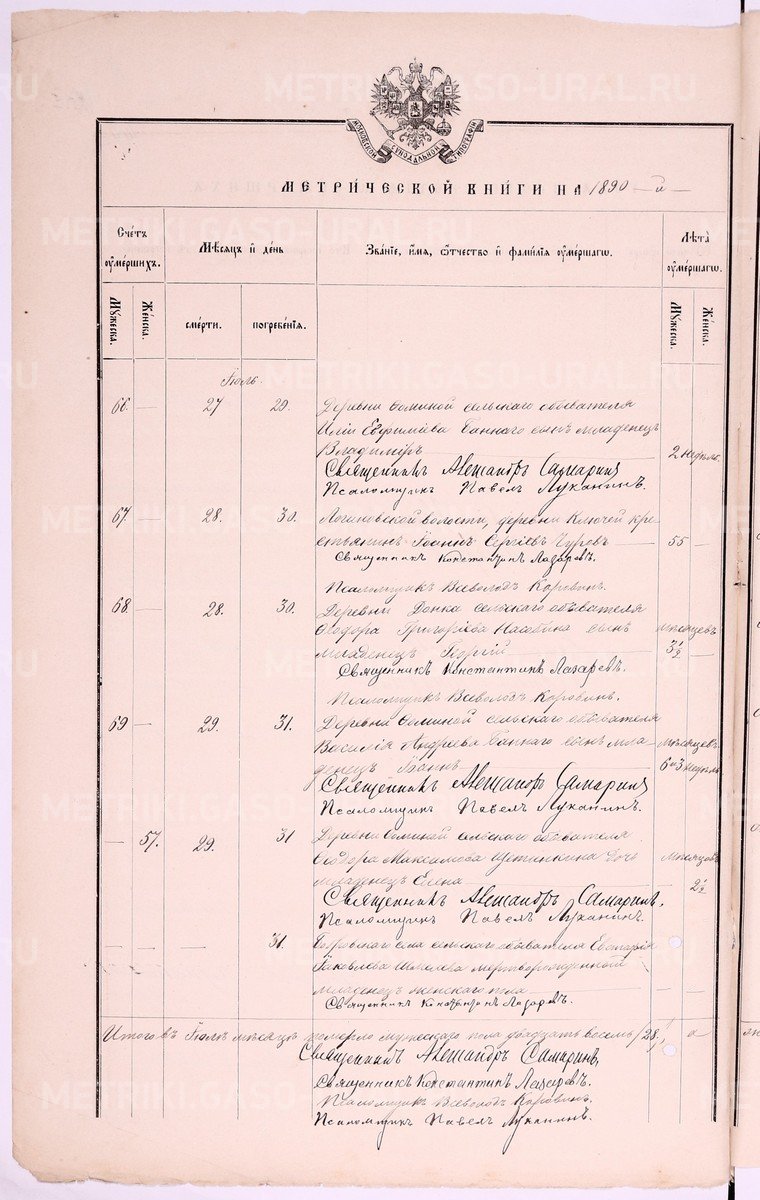 МОСКОВСКОЙ СѴНОДАЛЬНОЙ ТИПОГРАФІИ
МЕТРИ́ЧЕСКОЙ КНИ́ГИ НА 1890-й-
Сче́тъ ᲂу҆ме́ршихъ.
Мѣ́сяцъ и҆ де́нь
Зва́нїе, и҆́мя, ѻ҆́тчество и҆ фами́лїя ᲂу҆ме́ршагѡ.
Лѣ́та ᲂу҆ме́ршагѡ.
Мꙋ́жеска.
Же́нска.
сме́рти.
погребе́нїя.
Мꙋ́жеска.
Же́нска.
Іюль.
66. — 27 29. Деревни Соминой сельскаго обывателя
Иліи Евфиміева Баннаго сынъ младенецъ
Владиміръ — 2 недѣль.
Священникъ Александръ Самаринъ
Псаломщикъ Павелъ Луканинъ.
67. — 28. 30. Логиновской волости, деревни Ключей кре-
стьянинъ Іоаннъ Сергіевъ Чуровъ — 55 —
Священникъ Константинъ Лазаревъ.
Псаломщикъ Всеволодъ Коровинъ.
68. — 28. 30. Деревни сельскаго обывателя
Ѳеодора Григоріева сынъ мѣсяцевъ
младенецъ Георгій — 3 1/2 —
Священникъ Константинъ Лазаревъ.
Псаломщикъ Всеволодъ Коровинъ.
69 — 29. 31. Деревни Соминой сельскаго обывателя
Василія Андреева Баннаго сынъ мла- мѣсяцевъ
денецъ Іоаннъ — 6 и 3 недѣль
Священникъ Александръ Самаринъ
Псаломщикъ Павелъ Луканинъ.
— 57. 29. 31 Деревни Соминой сельскаго обывателя
Ѳеодора Максимова Щетинкина дочь мѣсяцевъ
младенецъ Елена — 2 1/2
Священникъ Александръ Самаринъ,
Псаломщикъ Павелъ Луканинъ.
— — — 31. села сельскаго обывателя
Іаковлева мертворожденный
младенецъ женскаго пола — —
Священникъ Константинъ Лазаревъ.
Итого въ Іюлѣ мѣсяцѣ померло мужескаго пола двадцать восемь /28/, а
Священникъ Александръ Самаринъ,
Священникъ Константинъ Лазаревъ.
Псаломщикъ Всеволодъ Коровинъ.
Псаломщикъ Павелъ Луканинъ.
METRIKI.GASO-URAL.RU